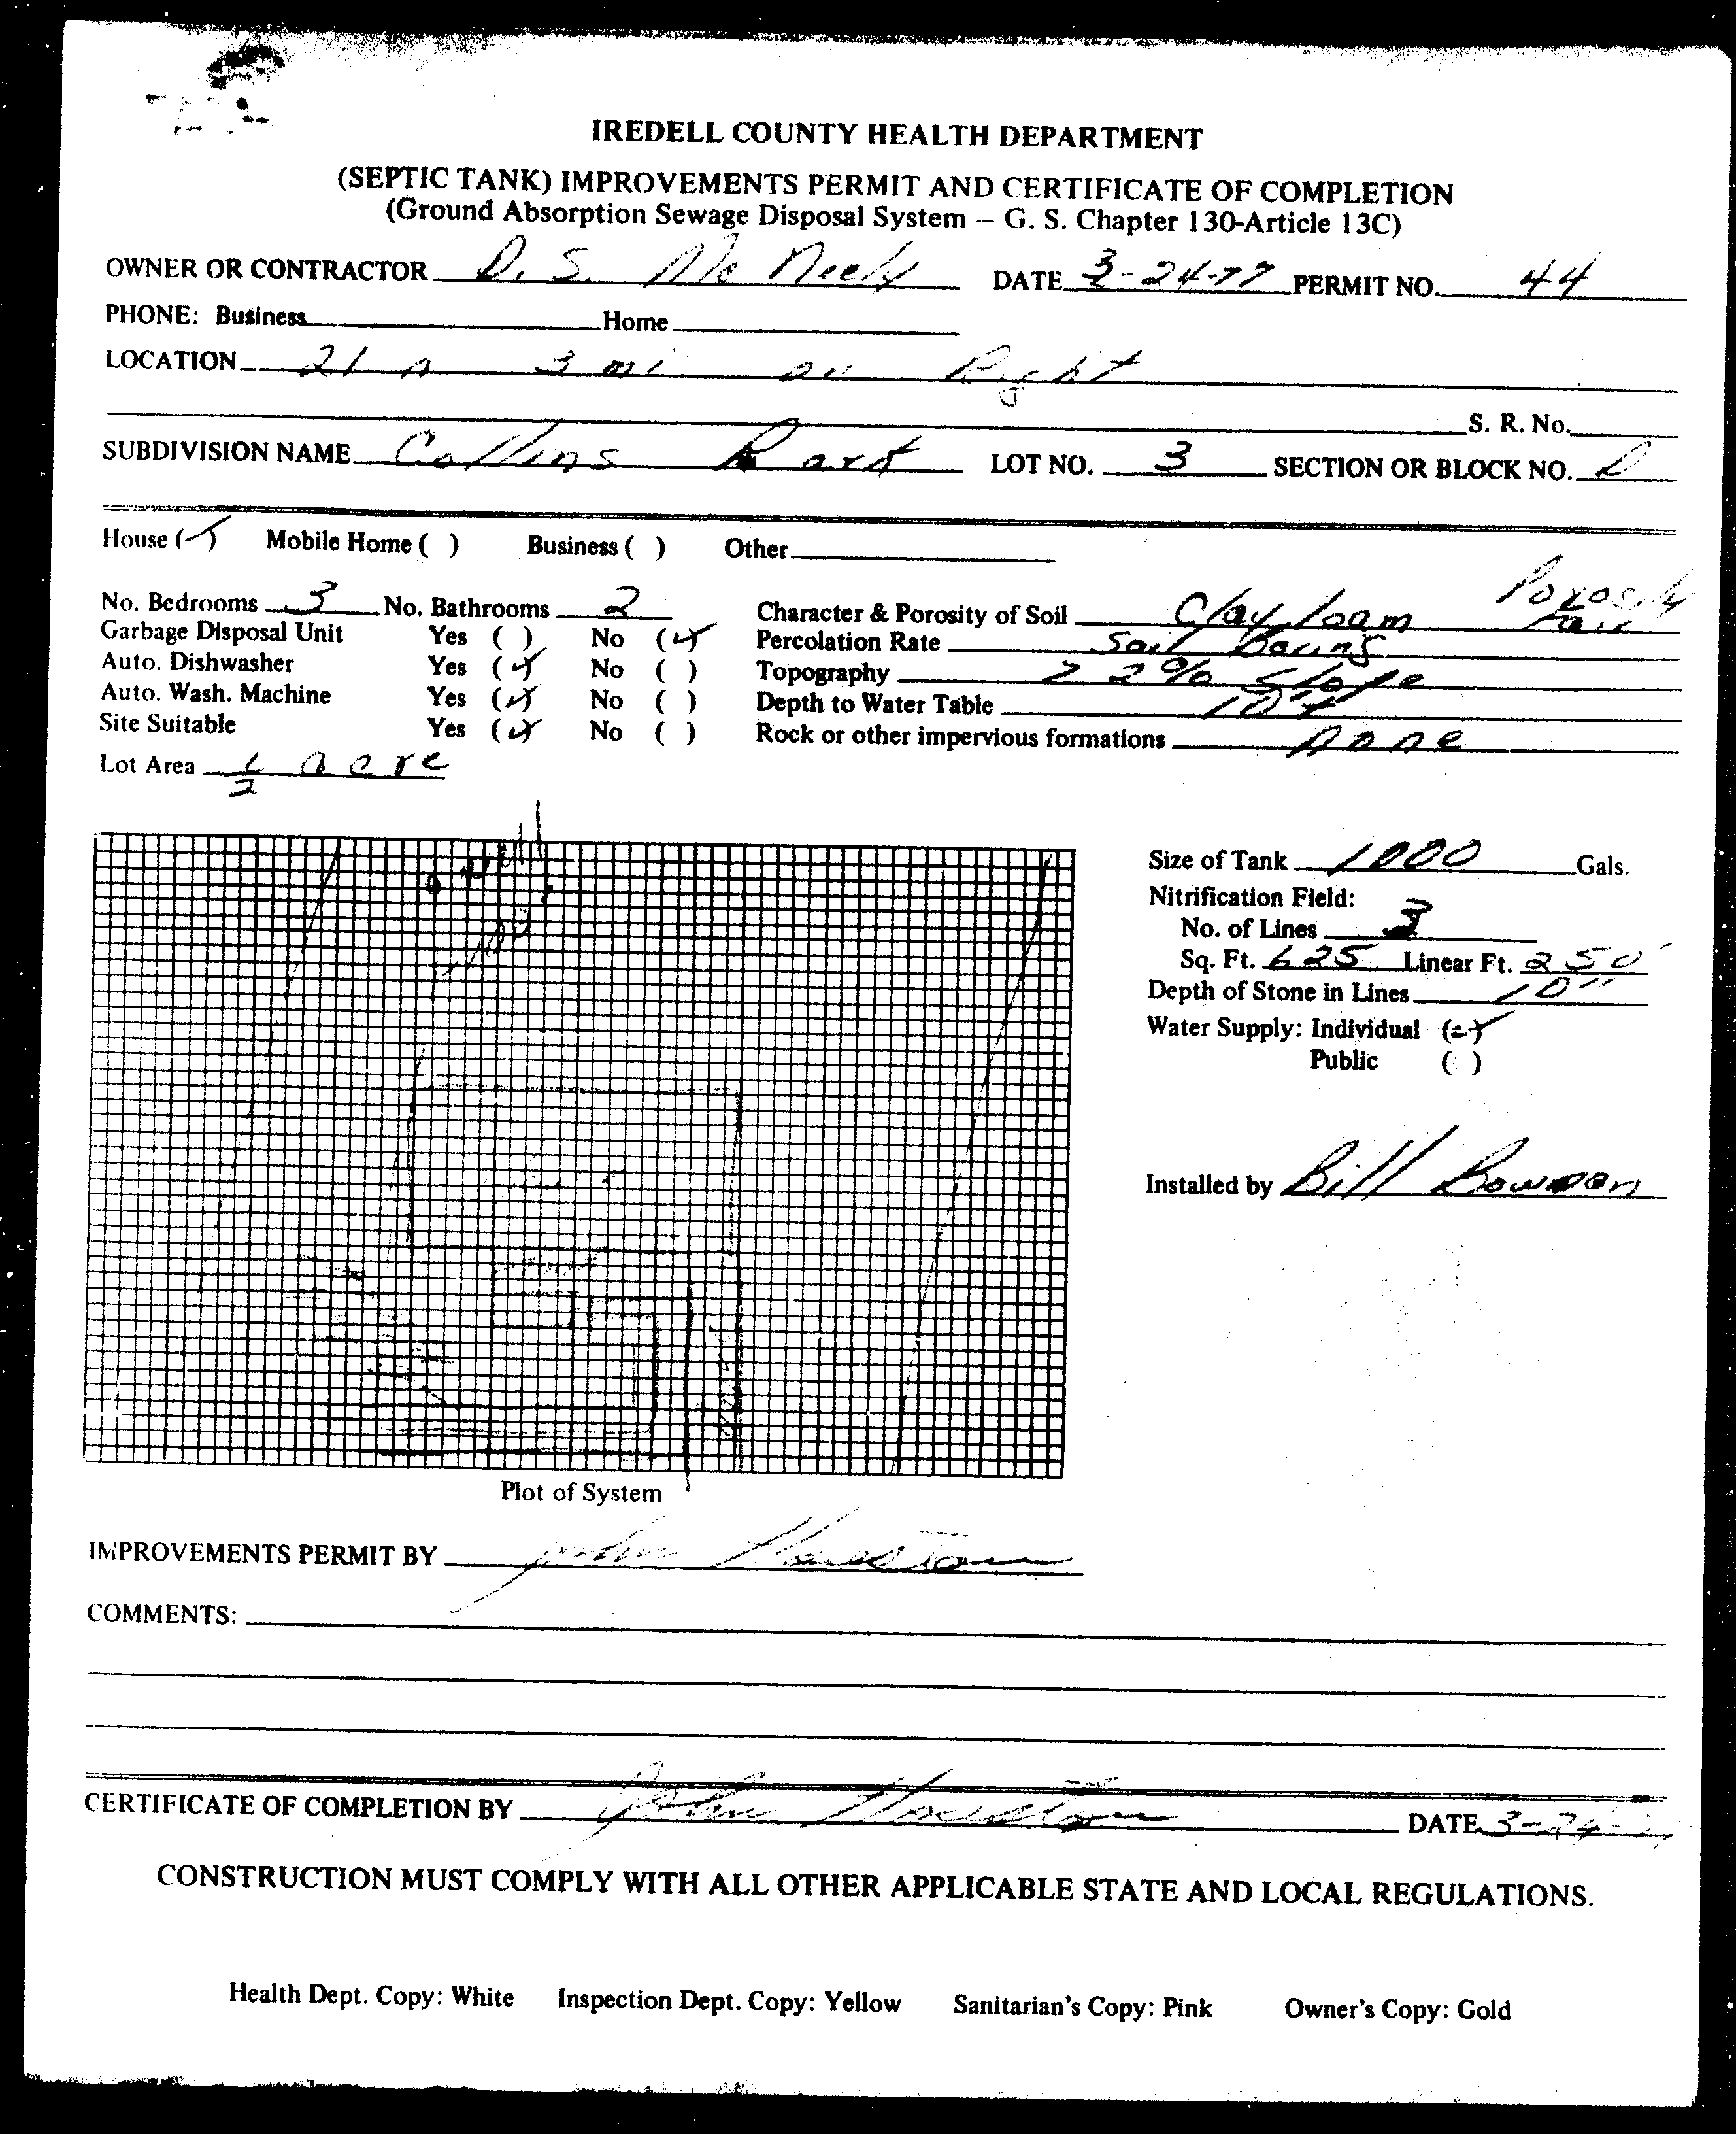 IREDELL COUNTY HEALTH DEPARTMENT
(SEPTIC TANK) IMPROVEMENTS PERMIT AND CERTIFICATE OF COMPLETION
(Ground Absorption Sewage Disposal System – G. S. Chapter 130-Article 13C)
OWNER OR CONTRACTOR D. S. Mc Neely DATE 3-24-77 PERMIT NO. 44
PHONE: Business Home
LOCATION 21 n 3 mi on Right
S. R. No.
SUBDIVISION NAME Collins LOT NO. 3 SECTION OR BLOCK NO. D
House (✓) Mobile Home ( ) Business ( ) Other
No. Bedrooms 3 No. Bathrooms 2 Character & Porosity of Soil Clay loam Porosity Fair
Garbage Disposal Unit Yes ( ) No (✓) Percolation Rate Soil Boring
Auto. Dishwasher Yes (✓) No ( ) Topography > 2% slope
Auto. Wash. Machine Yes (✓) No ( ) Depth to Water Table 10'+
Site Suitable Yes (✓) No ( ) Rock or other impervious formations none
Lot Area 1/2 acre
well
100'
Size of Tank 1000 Gals.
Nitrification Field:
No. of Lines 3
Sq. Ft. 625 Linear Ft. 250'
Depth of Stone in Lines 10"
Water Supply: Individual (✓)
Public ( )
Installed by Bill Bowman
Plot of System
IMPROVEMENTS PERMIT BY John Houston
COMMENTS:
CERTIFICATE OF COMPLETION BY John Houston DATE 3-24-77
CONSTRUCTION MUST COMPLY WITH ALL OTHER APPLICABLE STATE AND LOCAL REGULATIONS.
Health Dept. Copy: White Inspection Dept. Copy: Yellow Sanitarian's Copy: Pink Owner's Copy: Gold